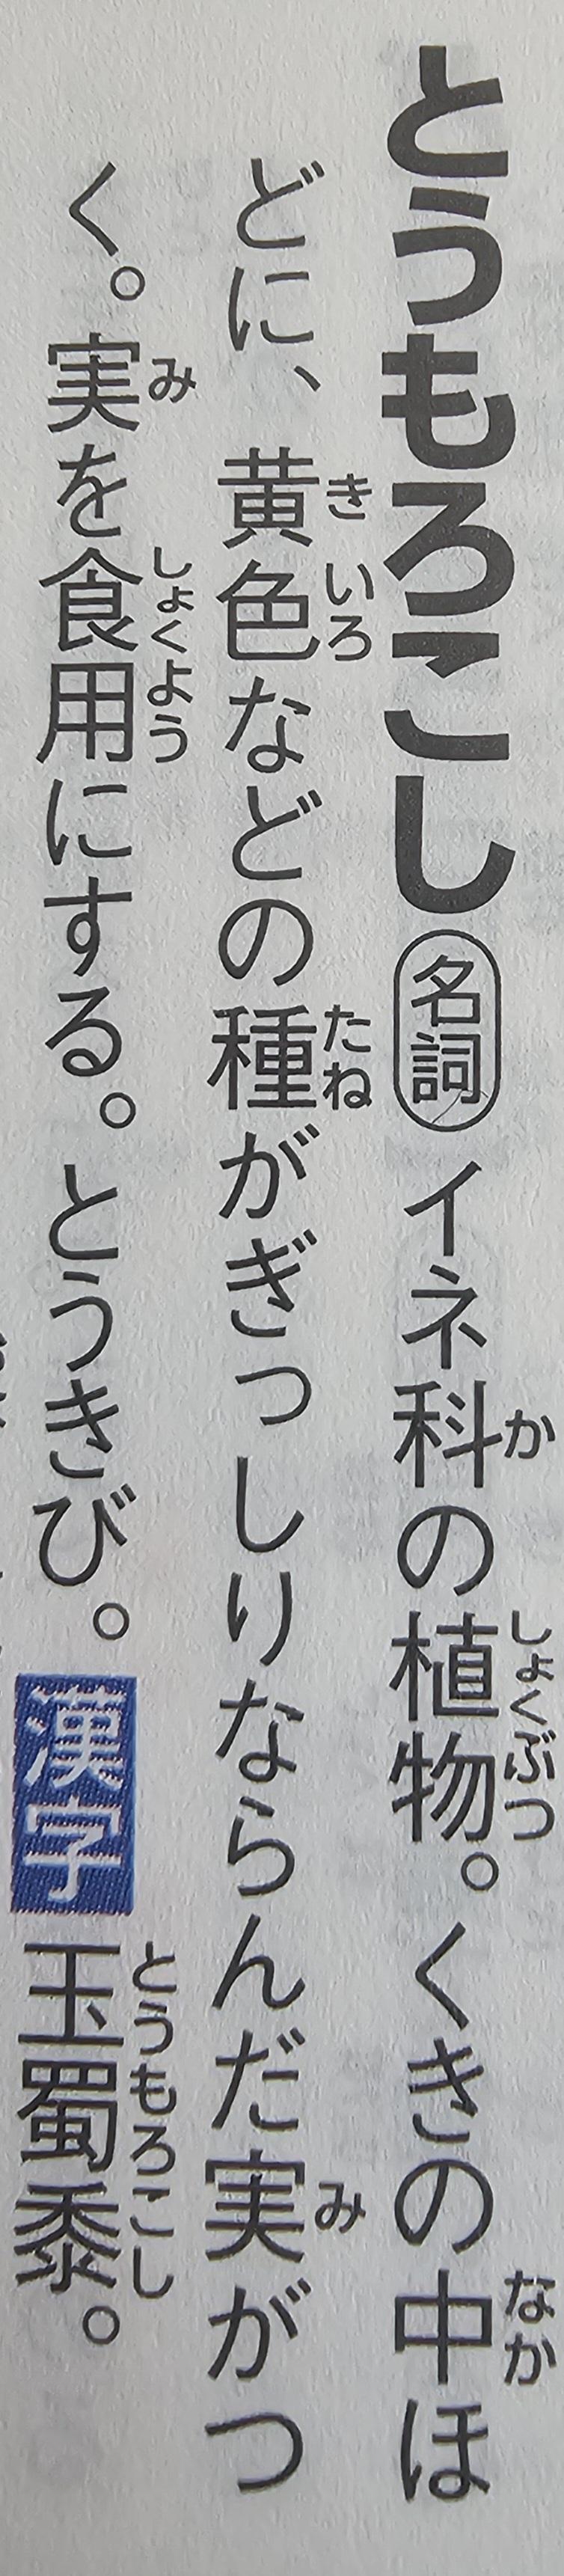 とうもろこし 名詞 イネ科の植物。くきの中ほ
どに、黄色などの種がぎっしりならんだ実がつ
く。実を食用にする。とうきび。漢字 玉蜀黍。